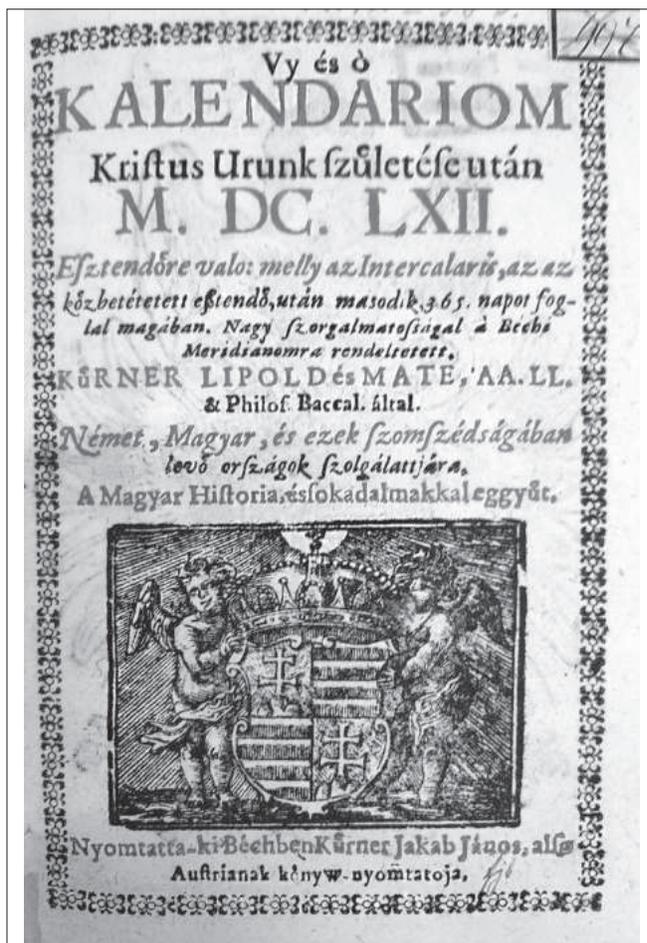 Vy és ò
KALENDARIOM
Kriſtus Urunk ſzůletéſe után
M. DC. LXII.
Eſztendőre valo: melly az Intercalaris, az az
kőzbetétetett eſztendő, után maſodik, 365. napot fog-
lal magában. Nagy ſzorgalmatoſságal à Béchi
Meridianomra rendeltetett.
KůRNER LIPOLD és MATE, AA. LL.
& Philoſ. Baccal. által.
Német, Magyar, és ezek ſzomſzédságában
levő orſzágok ſzolgálattjára.
A Magyar Hiſtoria, és ſokadalmakkal eggyůt.
Nyomtatta-ki Béchben Kůrner Jakab János, alſo
Auſtrianak kőnyw-nyomtatoja.